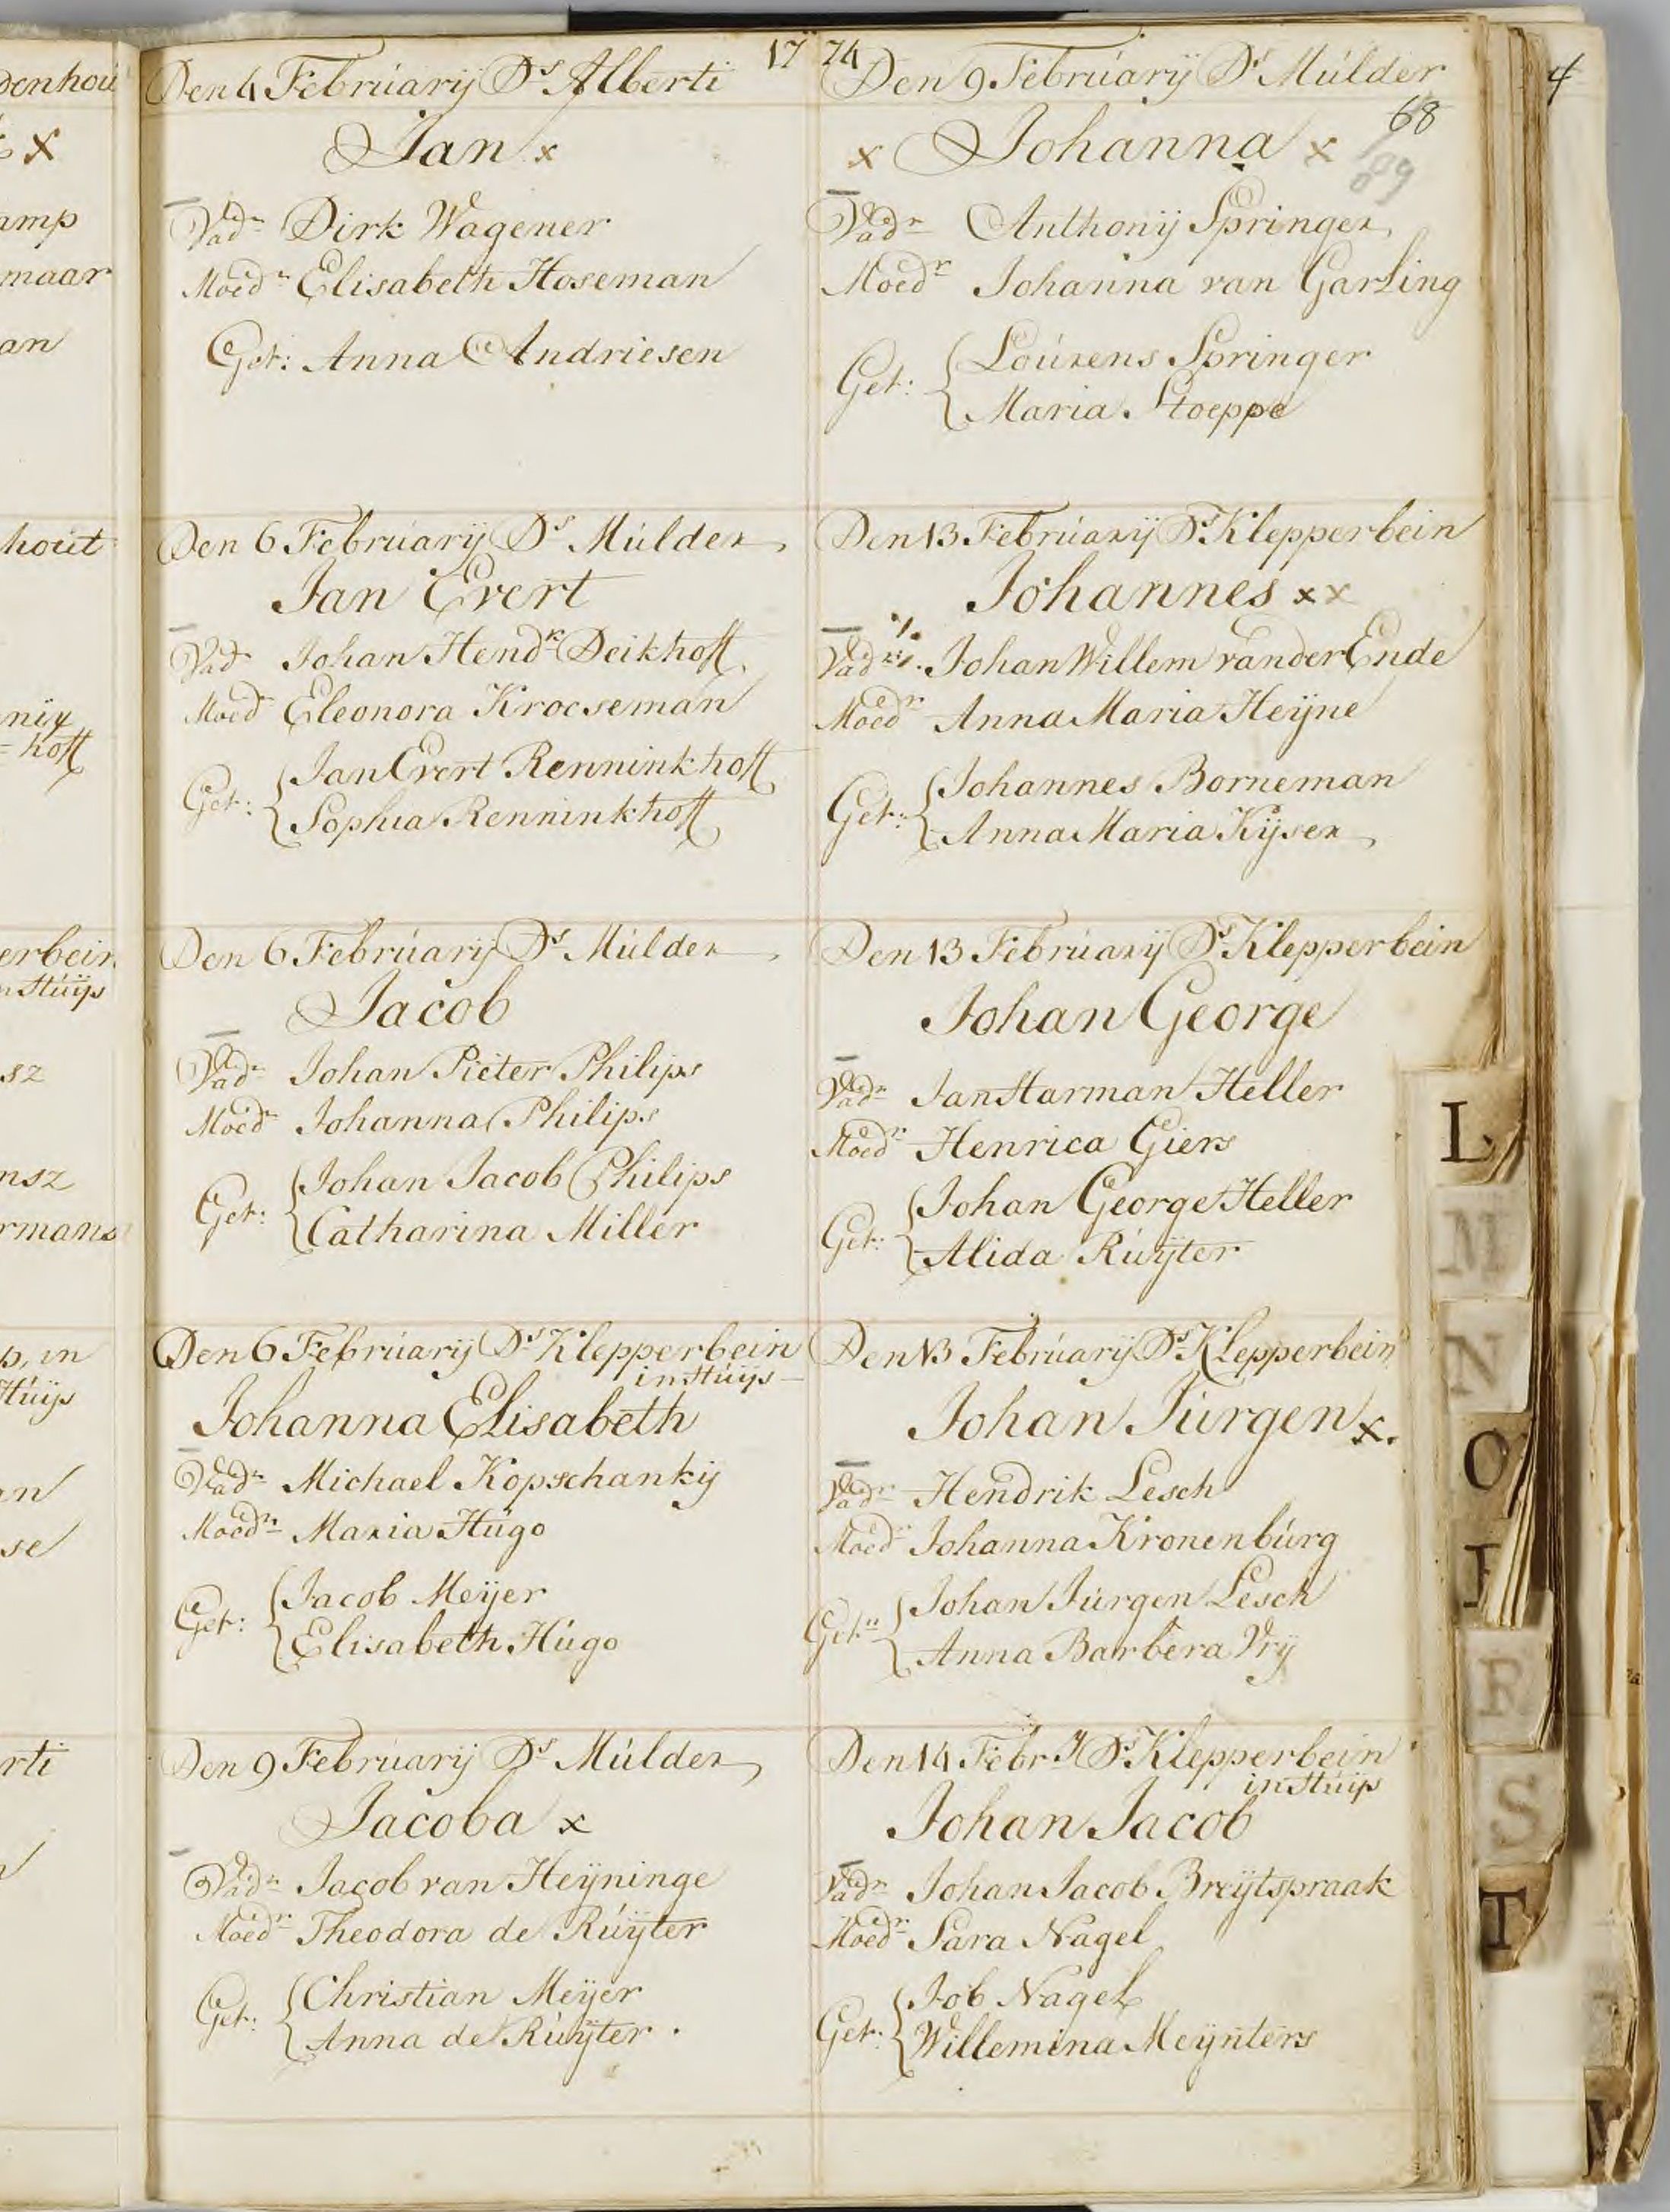 17 74
68
Den 4 Februarij Ds Alberti
Jan x
Vadr Dirk Wagener
Moedr Elisabeth Hoseman
Get: Anna Andriesen
Den 6 Februarij Ds Mulder
Jan Evert
Vadr Johan Hendk Deikhoff
Moedr Eleonora Krocseman
Get: Jan Evert Renninkhoff
Sophia Renninkhoff
Den 6 Februarij Ds Mulder
Jacob
Vadr Johan Pieter Philips
Moedr Johanna Philips
Get: Johan Jacob Philips
Catharina Miller
Den 6 Februarij Ds Klepperbein
in Huijs
Johanna Elisabeth
Vadr Michael Kopschankij
Moedr Maria Hugo
Get: Jacob Meijer
Elisabeth Hugo
Den 9 Februarij Ds Mulder
Jacoba x
Vadr Jacob van Heijninge
Moedr Theodora de Ruijter
Get: Christian Meijer
Anna de Ruijter
Den 9 Februarij Ds Mulder
x Johanna x
Vadr Anthonij Springer
Moedr Johanna van Garling
Get: Lourens Springer
Maria Stoeppe
Den 13 Februarij Ds Klepperbein
Johannes xx
Vadr Johan Willem van der Ende
Moedr Anna Maria Heijne
Get: Johannes Borneman
Anna Maria Kijser
Den 13 Februarij Ds Klepperbein
Johan George
Vadr Jan Harman Heller
Moedr Henrica Giers
Get: Johan George Heller
Alida Ruijter
Den 13 Februarij Ds Klepperbein
Johan Jurgen x
Vadr Hendrik Lesch
Moedr Johanna Kronenburg
Get: Johan Jurgen Lesch
Anna Barbera Vrij
Den 14 Febrij Ds Klepperbein
in Huijs
Johan Jacob
Vadr Johan Jacob Breijtspraak
Moedr Sara Nagel
Get: Job Nagel
Willemina Meijnters
L
M
N
O
R
S
T
4